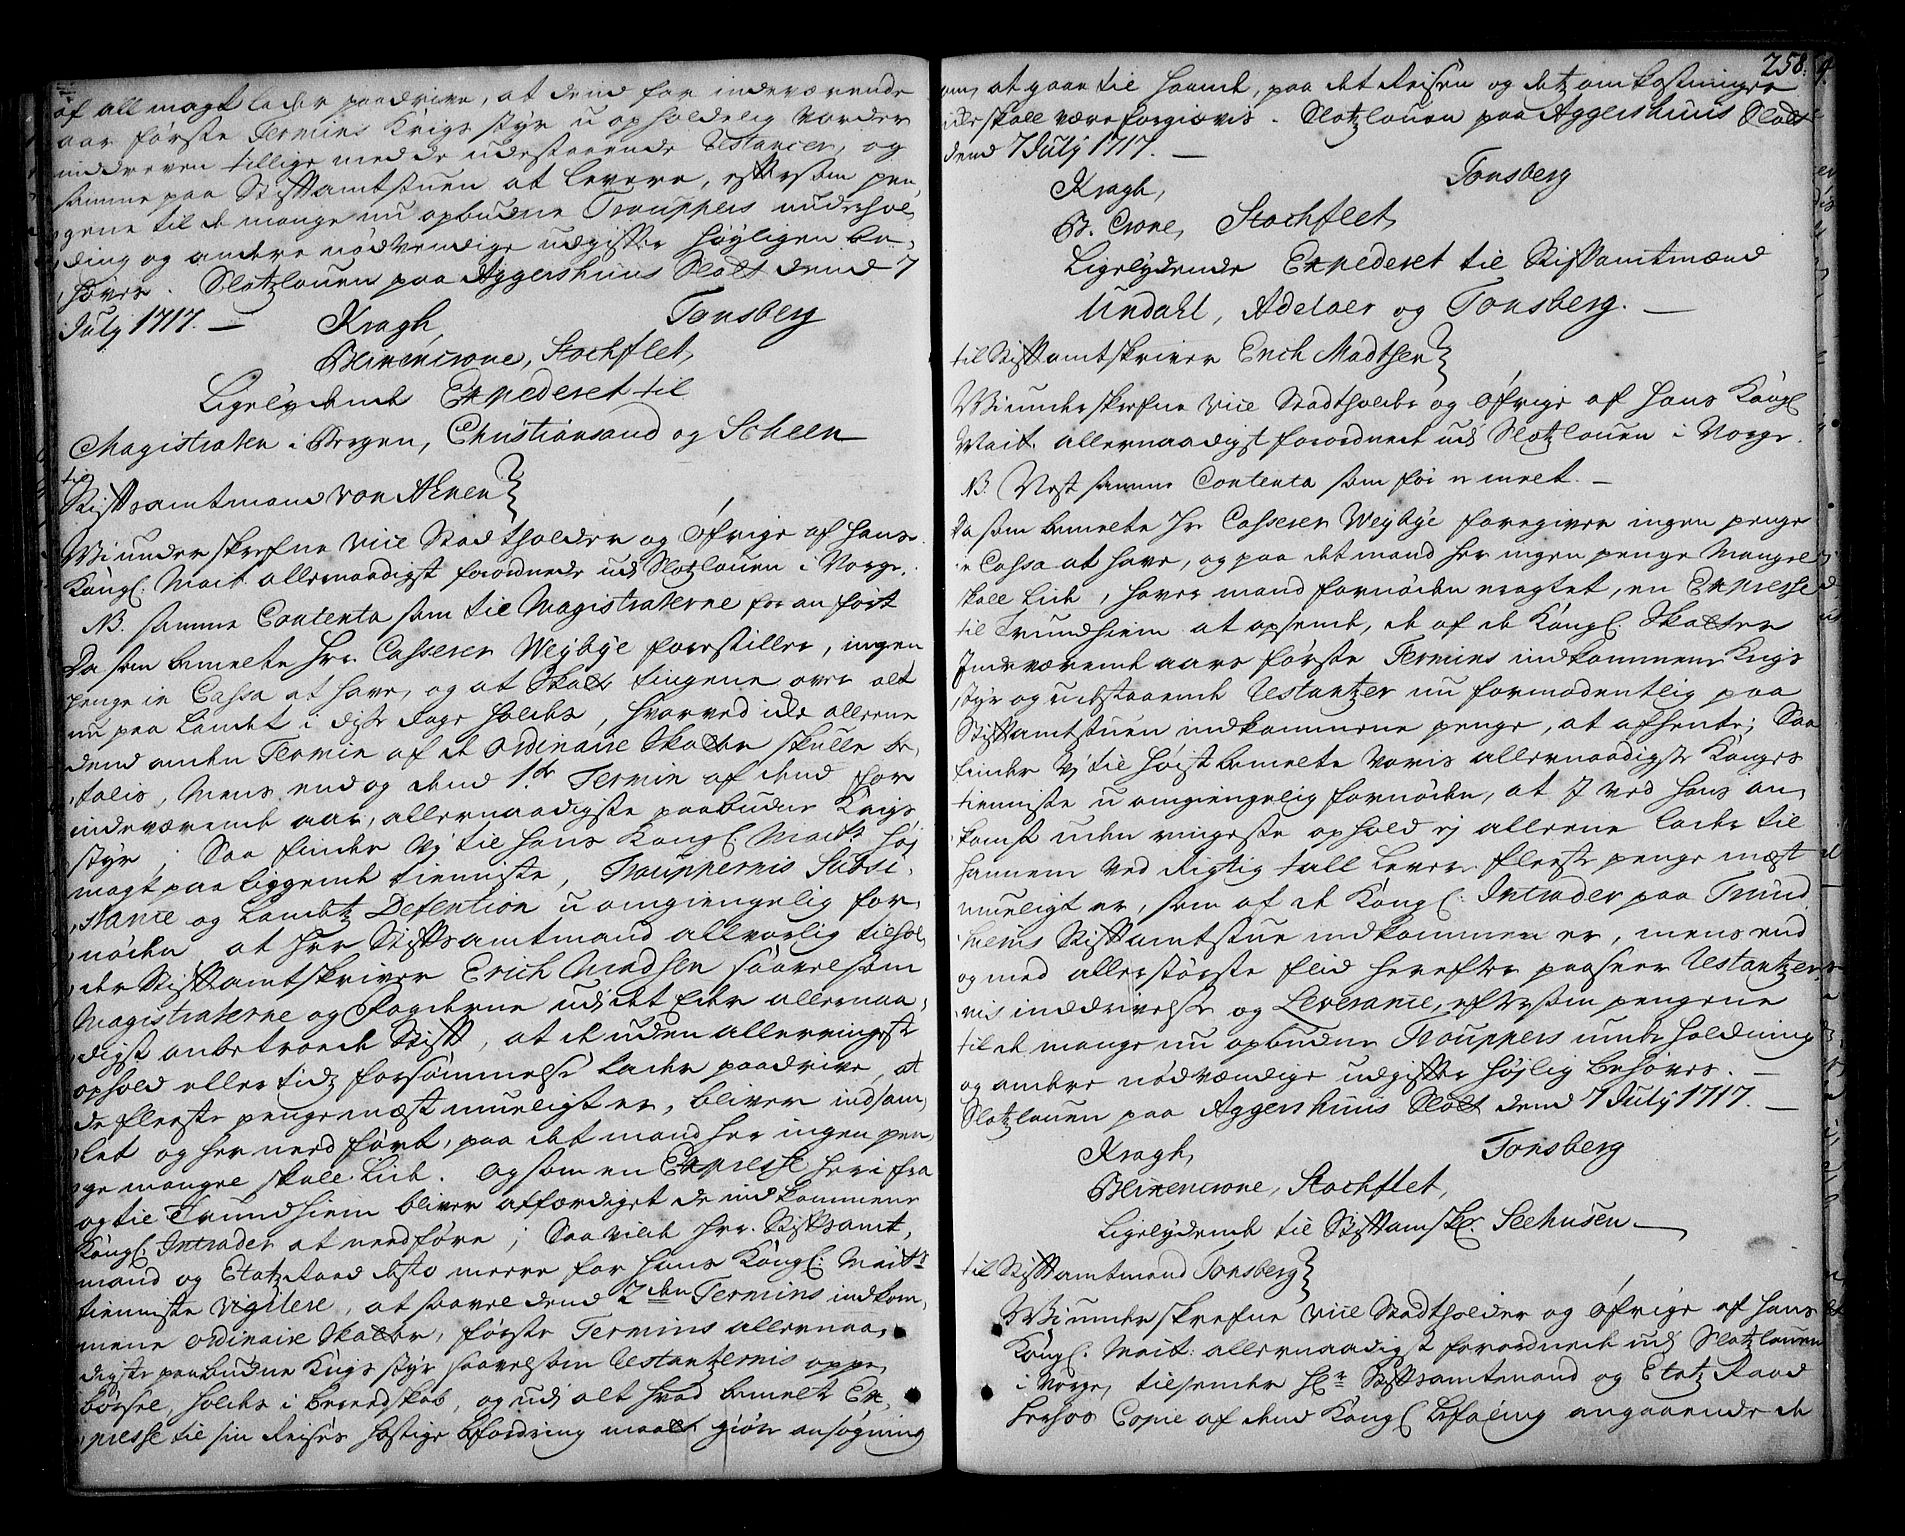 af all magt lader paadrive, at dend for indeværende
aar første Termins Krigs styr u opholdelig vorder
inddreven tillige med de udestaaende Restancer, og
samme paa Stiftamtstuen at levere, eftersom pen,
gene til de mange nu opbudne Trouppers underhol,
ding og andre nødvendige udgifter høyligen be,
høves. Slotzlouen paa Aggershuus Slott dend 7
July 1717. — Kragh, Tonsberg
Blixencrone, Stochflet,
Ligelydende Expederet til
Magistraten i Bergen, Christiansand og Scheen
til
Stiftsamtmand von Ahnen
Wi underskrefne Vice Stadtholder og Øfrige af Hans
Kongl. Mait. allernaadigst forordnede udj Slotzlouen i Norge.
NB. samme Contenta som til Magistraterne for anført
Da som bemelte Hr. Casserer Weybye forestiller, ingen
penge in Cassa at have, og at Skatte tingene over alt
nu paa Landet i disse dage holdes, hvorved icke allene
dend anden Termin af de ordinaire Skatter skulle be,
tales, Mens end og dend 1.te Termin af dend for
indeværende aar, allernaadigste paabudne Krigs
styr; Saa finder Vj til Hans Kongl Maits høj
magt paa liggende tienniste, Trouppernis Subsi,
stance og Landetz Defention u omgiengelig for,
nøden at Herr Stiftsamtmand allvorlig tilhol,
der Stiftamtskriver Erich Madsen saavelsom
Magistraterne og Fogderne udj det Eder allernaa,
digst anbetroede Stift, at de uden allerringeste
ophold eller tidz forsømmelse lader paadrive, at
de fleeste penge mæst mueligt er, bliver indsam,
let og her ned ført, paa det mand her ingen pen,
ge mangel skall lide. og som en Expresse heri fra
og til Trundhiem bliver affærdiget de ind kommene
Kongl. Intrader at nedføre; Saa vilde Hr. Stiftsamt,
mand og Etatz Raad desto meere for Hans Kongl. Maits
tienniste vigilere, at saavel dend 2den Termins indkom,
mene ordinaire Skatter, første Termins allernaa,
digste paabudne Krigs styr saavelsom Restantzernis oppe,
børsel, holdes i beredskab, og udj alt hvad bemelte Ex,
presse til sin Reises hastige befordring maatte giøre ansøgning
258.
om, at gaae til haande, paa det Reisen og detz omkostninger
icke skall være forgiævis. Slotzlouen paa Aggershuus Slott
dend 7 July 1717. —
Kragh, Tonsberg
B. Crone, Stochflet,
Ligelydende Expederet til Stiftamtmænd
Undahl, Adelaer og Tonsberg. —
til Stiftamtskriver Erich Madtsen
Wi underskrefne Vice Stadtholder og Øfrige af Hans Kongl
Mait. allernaadigst forordnede udj Slotzlouen i Norge.
NB. Vest samme Contenta som før er melt. —
Da som bemelte Hr. Casserer Weybye foregiver ingen penge
in Cassa at have, og paa det mand her ingen penge Mangel
skall lide, haver mand fornøden eragtet, en Expresse
til Trundhiem at opsende, de af de Kongl. Skatter
Indeværende aars første Termins indkommen Krigs
styr og udestaaende Restantzer nu formodentlig paa
Stiftamtstuen indkommene penge, at afhente; Saa
finder Vj til højst bemelte Voris allernaadigste Konges
tienniste u omgiengelig fornøden, at I ved hans an,
komst uden ringeste ophold ej allene lader til
hannem ved Rigtig tall levere fleeste penge mæst
mueligt er, som af de Kongl. Intrader paa Trund,
hiems Stiftamtstue indkommen er, mens end
og med allerstørste flid herefter paaseer Restantzer,
nis inddrivelse og Leverance, eftersom pengene
til de mange nu opbudne Trouppers underholdning
og andre nødvændige udgifter højlig behøves. —
Slotzlouen paa Aggershuus Slott dend 7 July 1717. —
Kragh, Tonsberg
Blixencrone, Stochflet,
Ligelydende til Stiftamskr. Seehusen —
til Stiftamtmand Tonsberg
Wi underskrefne Vice Stadtholder og Øfrige af Hans
Kongl. Mait: allernaadigst forordnede udj Slotzlouen
i Norge, tilsender Hr Stiftsamtmand og Etatz Raad
herhos Copie af dend Kongl befaling angaaende de